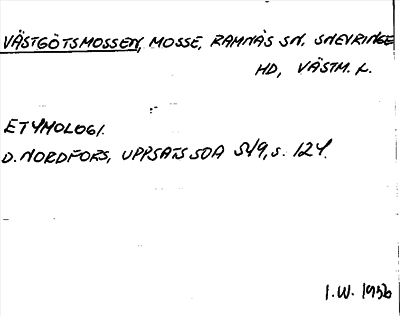 VÄSTGÖTSMOSSEN, MOSSE, RAMNÄS SN, SNEVRINGE
HD, VÄSTM. L.
ETYMOLOGI.
D. NORDFORS, UPPSATS SOA 549, S. 124.
I.W. 1956